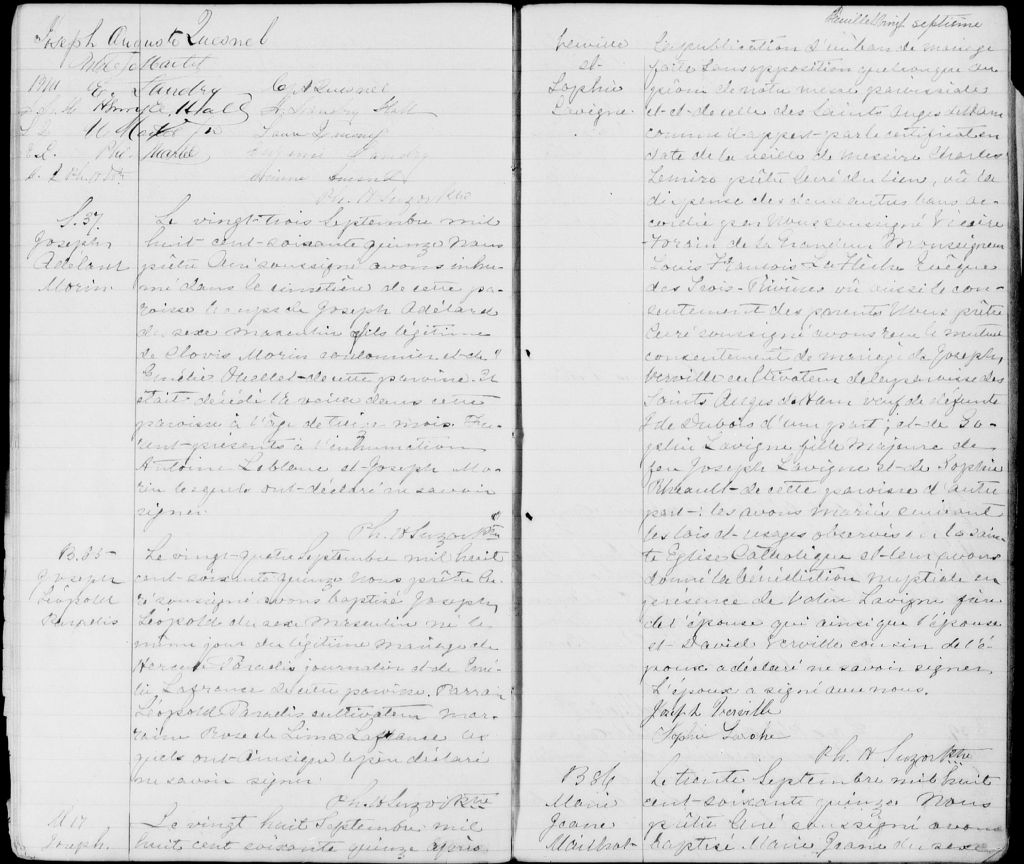 Joseph Auguste Quesnel
Martel
E. Landry C. A. Quesnel
H. Landry
Ph. H Suzor Ptre
S. 37
Joseph
Adélard
Morin
Le vingt-trois Septembre mil
huit-cent-soixante quinze Nous
prêtre Curé soussigné avons inhu-
mé dans le cimetière de cette pa-
roisse le corps de Joseph Adélard
du sexe masculin fils légitime
de Clovis Morin cordonnier et de
Emélie Ouellet de cette paroisse. Il
était décédé la veille dans cette
paroisse à l'âge de treize mois. Fu-
rent présents à l'inhumation
Antoine Leblanc et Joseph Mo-
rin lesquels ont déclaré ne savoir
signer.
Ph. H Suzor Ptre
B. 85
Joseph
Léopold
Paradis
Le vingt-quatre Septembre mil huit
cent-soixante quinze Nous prêtre Cu-
ré soussigné avons baptisé Joseph
Léopold du sexe masculin né le
même jour du légitime mariage de
Hercule Paradis journalier et de Emé-
lie Lafrance de cette paroisse. Parrain
Léopold Paradis cultivateur mar-
raine Rose de Lima Lafrance les
quels ont ainsi que le père déclaré
ne savoir signer.
Ph. H Suzor Ptre
M 17
Joseph
Le vingt huit Septembre mil
huit cent soixante quinze après
Feuillet vingt septième
Verville
et
Sophie
Lavigne
la publication d'un ban de mariage
faite sans opposition
prône de notre messe paroissiale
et de celle des Saints Anges de Ham
comme il appert par le certificat en
date de la veille de messire Charles
Lemire prêtre Curé du lieu, vû la
dispense des deux autres bans ac-
cordée par Nous soussigné Vicaire
Forain de Sa Grandeur Monseigneur
Louis François Laflèche Evêque
des Trois-Rivières vû aussi le con-
sentement des parents Nous prêtre
Curé soussigné avons reçu le mutuel
consentement de mariage de Joseph
Verville cultivateur de la paroisse des
Saints Anges de Ham veuf de défunte
Dubois d'une part; et de So-
phie Lavigne fille majeure de
feu Joseph Lavigne et de Sophie
Rheault de cette paroisse d'autre
part; les avons mariés suivant
les lois et usages observés en la sain-
te Eglise Catholique et leur avons
donné la bénédiction nuptiale en
présence de Lavigne frère
de l'épouse qui ainsi que l'épouse
et David Verville cousin de l'é-
poux a déclaré ne savoir signer
L'époux a signé avec nous.
Joseph Verville
Ph. H Suzor Ptre
B 86
Marie
Jeanne
Mailhot
Le trente Septembre mil huit
cent-soixante quinze Nous
prêtre Curé soussigné avons
baptisé Marie Jeanne du sexe